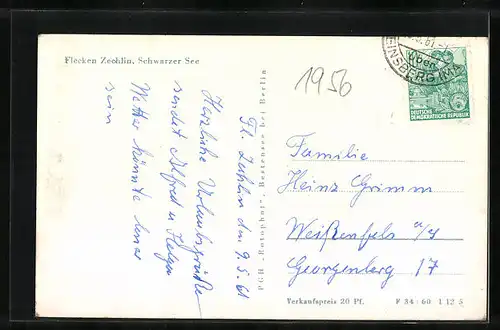 Flecken Zechlin, Schwarzer See
1956
Fl. Zechlin den 9.5.61
Herzliche Urlaubsgrüße
sendet Alfred u. Helga
Wetter könnte besser
sein
PGH „Rotophot“, Bestensee bei Berlin
über
DEUTSCHE
DEMOKRATISCHE REPUBLIK
Familie
Heinz Grimm
Weißenfels a/S
Georgenberg 17
Verkaufspreis 20 Pf. F 34/60 1 12 5